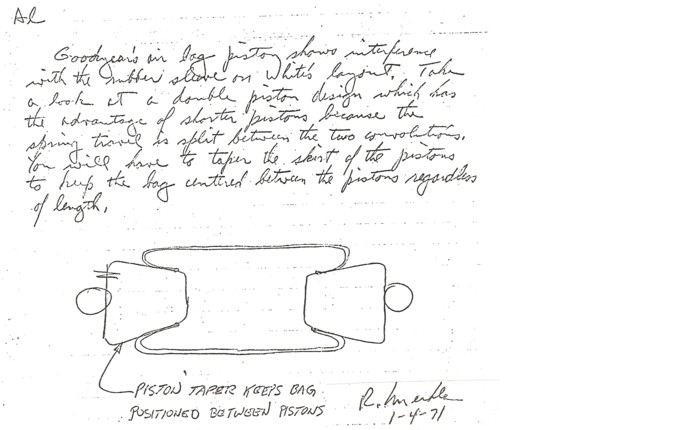 Al
Goodyear's air bag piston shows interference
with the rubber sleeve on White's layout. Take
a look at a double piston design which has
the advantage of shorter pistons because the
spring travel is split between the two convolutions.
You will have to taper the skirt of the pistons
to keep the bag centered between the pistons regardless
of length.
PISTON TAPER KEEPS BAG
POSITIONED BETWEEN PISTONS
R.
1-4-71